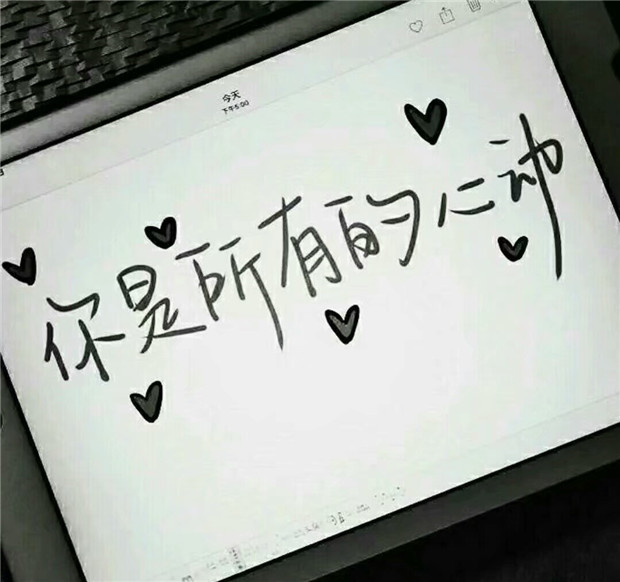 今天
下午5:00
你是所有的心动